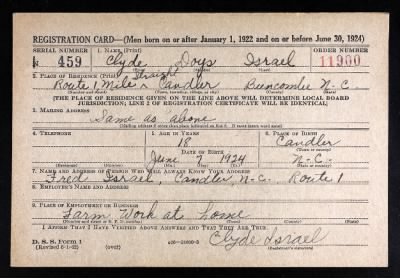 REGISTRATION CARD—(Men born on or after January 1, 1922 and on or before June 30, 1924)
SERIAL NUMBER 1. NAME (Print) ORDER NUMBER
N 459 Clyde Doys Israel 11900
(First) (Middle) (Last)
2. PLACE OF RESIDENCE (Print)
Straight
Route 1, Mile Candler Buncombe N.C.
(Number and street) (Town, township, village, or city) (County) (State)
[THE PLACE OF RESIDENCE GIVEN ON THE LINE ABOVE WILL DETERMINE LOCAL BOARD
JURISDICTION; LINE 2 OF REGISTRATION CERTIFICATE WILL BE IDENTICAL]
3. MAILING ADDRESS
Same as above
[Mailing address if other than place indicated on line 2. If same insert word same]
4. TELEPHONE 5. AGE IN YEARS 6. PLACE OF BIRTH
18 Candler
DATE OF BIRTH (Town or county)
June 7 1924 N.C.
(Exchange) (Number) (Mo.) (Day) (Yr.) (State or country)
7. NAME AND ADDRESS OF PERSON WHO WILL ALWAYS KNOW YOUR ADDRESS
Fred Israel, Candler, N.C. Route 1
8. EMPLOYER'S NAME AND ADDRESS
9. PLACE OF EMPLOYMENT OR BUSINESS
Farm Work at home
(Number and street or R. F. D. number) (Town) (County) (State)
I AFFIRM THAT I HAVE VERIFIED ABOVE ANSWERS AND THAT THEY ARE TRUE.
D. S. S. FORM 1 Clyde Israel
(Registrant's signature)